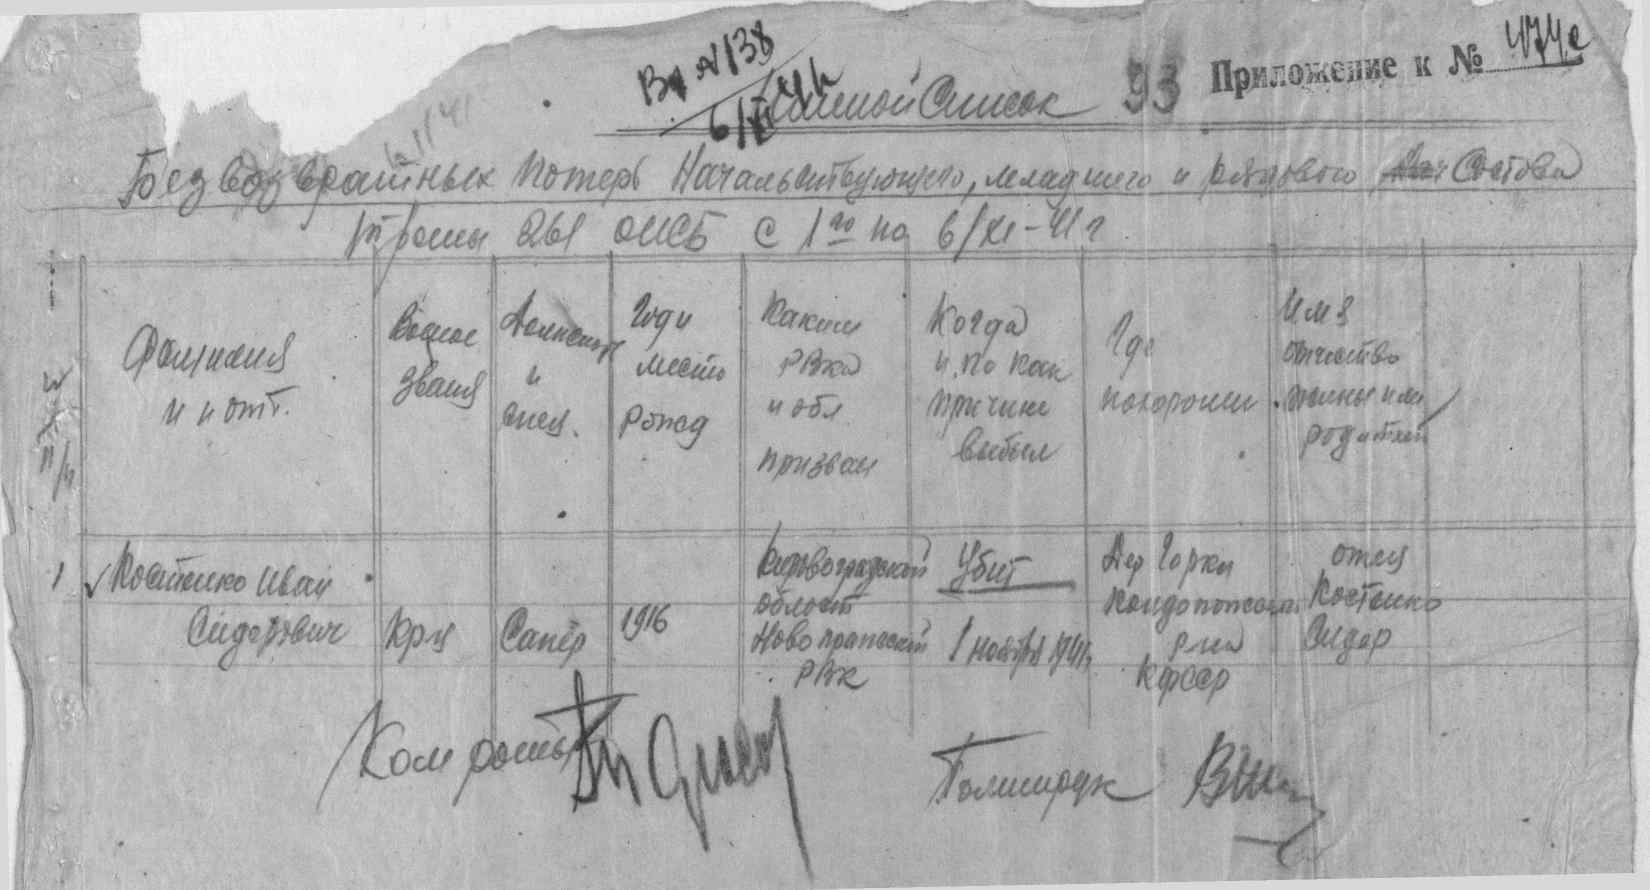 Вх №138
6/XI 41г
Приложение к № 474с
Именной Список 93
Безвозвратных потерь Начальствующего, младшего и рядового Состава
роты 261 ОИСБ с 1го по 6/XI-41г
№ п/п
Фамилия и и отч.
Военое звания
Должность и спец.
Год и место рожд
Каким РВКа и обл призван
Когда и по как причине выбыл
Где похоронен
Имя отчество жены или родителей
1 Костенко Иван Сидорович
Кр-ц
Сапёр
1916
Кировоградской област Ново прагский РВК
Убит 1 ноября 1941г
Дер Горка Кондопожског р-на КФССР
отец Костенко Сидор
Ком роты
Политрук